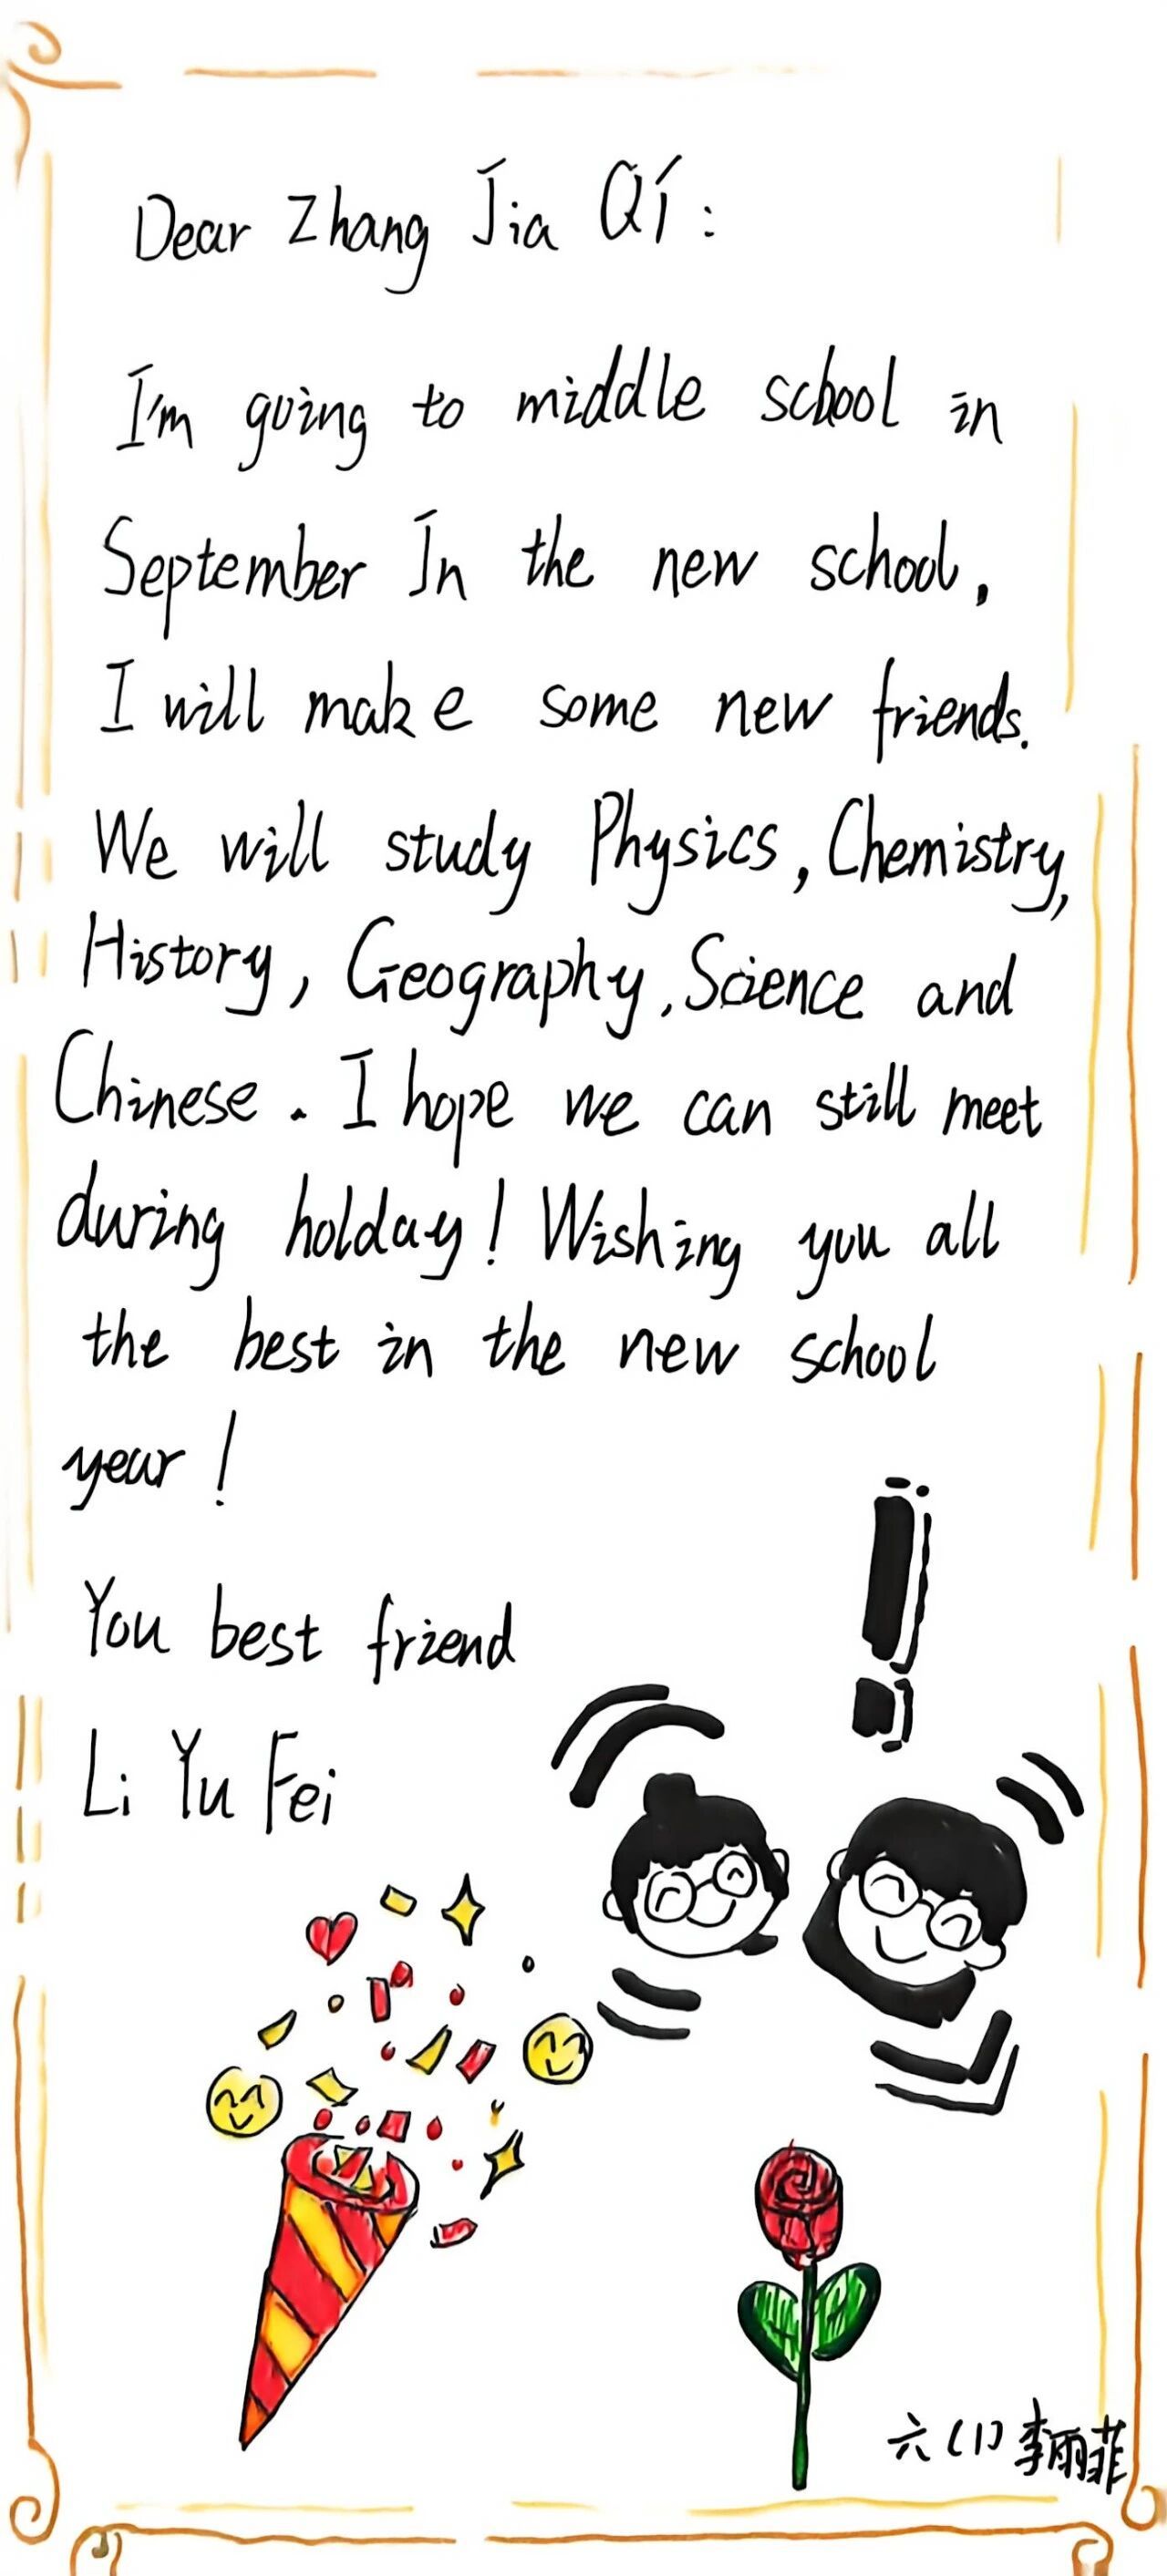 Dear Zhang Jia Qi:
I'm going to middle school in
September In the new school,
I will make some new friends.
We will study Physics, Chemistry,
History, Geography, Science and
Chinese. I hope we can still meet
during holday! Wishing you all
the best in the new school
year!
You best friend
Li Yu Fei
六(1) 李雨菲